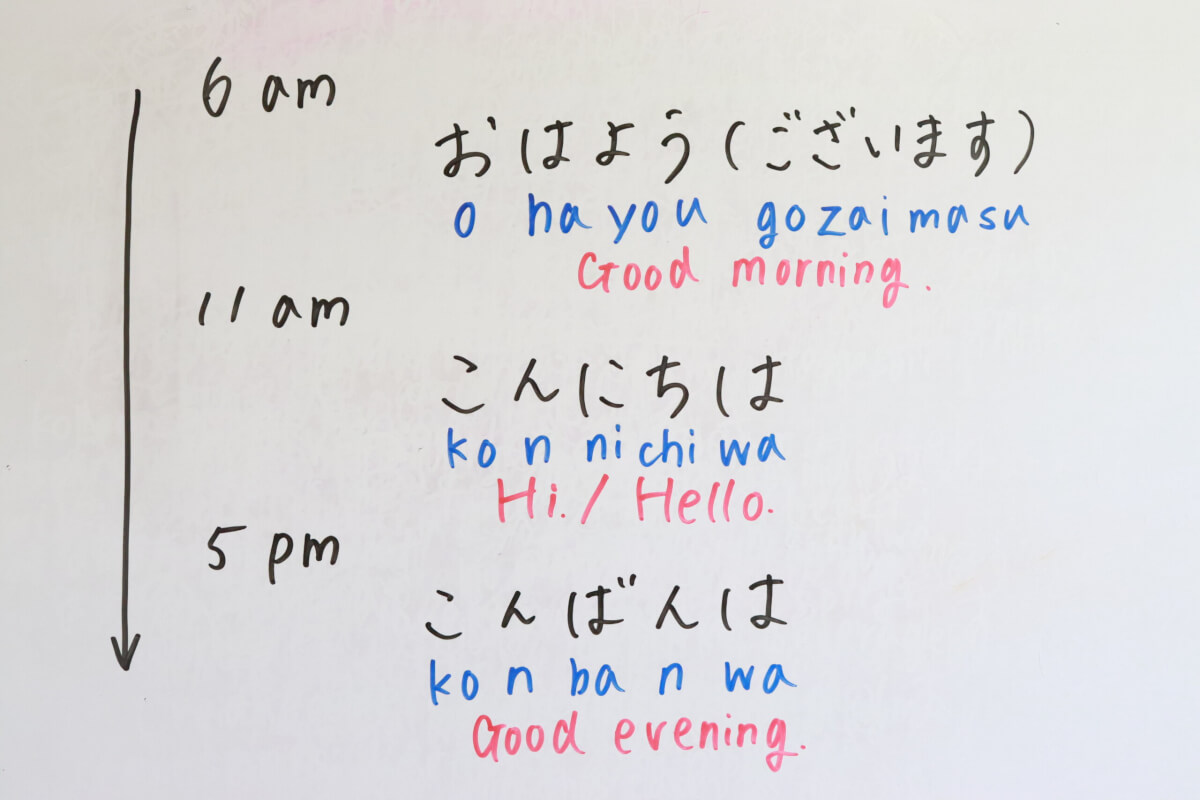 6 am
おはよう(ございます)
o hayou gozaimasu
Good morning.
11 am
こんにちは
ko n nichi wa
Hi. / Hello.
5 pm
こんばんは
ko n ba n wa
Good evening.